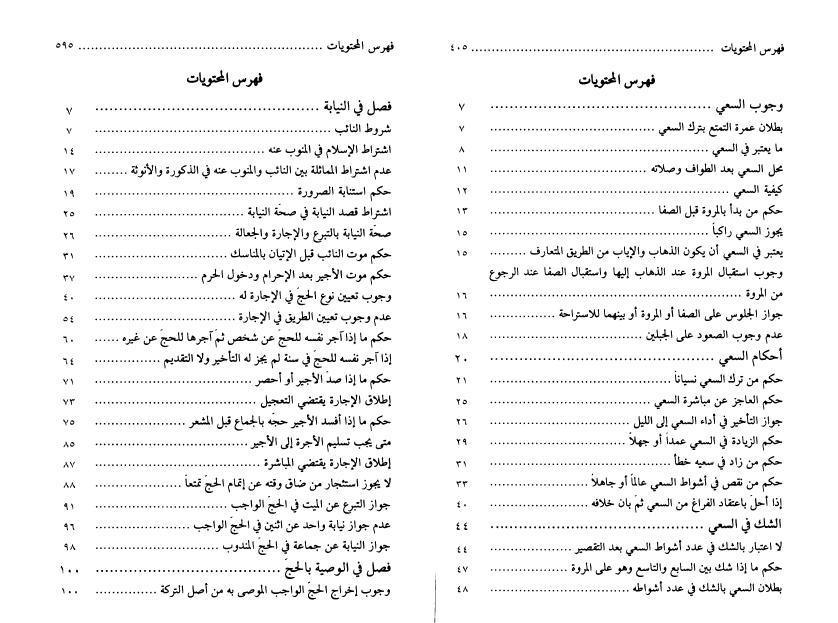 فهرس المحتويات ........................................................ ٤٠٥
فهرس المحتويات
وجوب السعي ........................................ ٧
بطلان عمرة التمتع بترك السعي ........................................ ٧
ما يعتبر في السعي ........................................ ٨
محل السعي بعد الطواف وصلاته ........................................ ١١
كيفية السعي ........................................ ١٢
حكم من بدأ بالمروة قبل الصفا ........................................ ١٣
يجوز السعي راكباً ........................................ ١٥
يعتبر في السعي أن يكون الذهاب والإياب من الطريق المتعارف ......... ١٥
وجوب استقبال المروة عند الذهاب إليها واستقبال الصفا عند الرجوع
من المروة ........................................ ١٦
جواز الجلوس على الصفا أو المروة أو بينهما للاستراحة ............... ١٦
عدم وجوب الصعود على الجبلين ........................................ ١٨
أحكام السعي ........................................ ٢٠
حكم من ترك السعي نسياناً ........................................ ٢١
حكم العاجز عن مباشرة السعي ........................................ ٢٥
جواز التأخير في أداء السعي إلى الليل ........................................ ٢٦
حكم الزيادة في السعي عمداً أو جهلاً ........................................ ٢٩
حكم من زاد في سعيه خطأ ........................................ ٣١
حكم من نقص في أشواط السعي عالماً أو جاهلاً ........................ ٣٣
إذا أحلّ باعتقاد الفراغ من السعي ثمّ بان خلافه ........................ ٤٠
الشك في السعي ........................................ ٤٤
لا اعتبار بالشك في عدد أشواط السعي بعد التقصير .................... ٤٤
حكم ما إذا شك بين السابع والتاسع وهو على المروة .................... ٤٧
بطلان السعي بالشك في عدد أشواطه ........................................ ٤٨
فهرس المحتويات ........................................................ ٥٩٥
فهرس المحتويات
فصل في النيابة ........................................ ٧
شروط النائب ........................................ ٧
اشتراط الإسلام في المنوب عنه ........................................ ١٤
عدم اشتراط المماثلة بين النائب والمنوب عنه في الذكورة والأنوثة ........ ١٧
حكم استنابة الصرورة ........................................ ١٩
اشتراط قصد النيابة في صحّة النيابة ........................................ ٢٥
صحّة النيابة بالتبرع والإجارة والجعالة ........................................ ٢٦
حكم موت النائب قبل الإتيان بالمناسك ........................................ ٣١
حكم موت الأجير بعد الإحرام ودخول الحرم ........................ ٣٧
وجوب تعيين نوع الحجّ في الإجارة له ........................................ ٤٠
عدم وجوب تعيين الطريق في الإجارة ........................................ ٥٤
حكم ما إذا آجر نفسه للحج عن شخص ثمّ آجرها للحجّ عن غيره ...... ٦٠
إذا آجر نفسه للحجّ في سنة لم يجز له التأخير ولا التقديم ............ ٦٤
حكم ما إذا صدّ الأجير أو أحصر ........................................ ٧١
إطلاق الإجارة يقتضي التعجيل ........................................ ٧٣
حكم ما إذا أفسد الأجير حجّه بالجماع قبل المشعر .................... ٧٥
متى يجب تسليم الأجرة إلى الأجير ........................................ ٨٥
إطلاق الإجارة يقتضي المباشرة ........................................ ٨٧
لا يجوز استئجار من ضاق وقته عن إتمام الحجّ تمتعاً .................... ٨٨
جواز التبرع عن الميت في الحجّ الواجب ........................................ ٩١
عدم جواز نيابة واحد عن اثنين في الحجّ الواجب ........................ ٩٦
جواز النيابة عن جماعة في الحجّ المندوب ........................................ ٩٨
فصل في الوصية بالحجّ ........................................ ١٠٠
وجوب إخراج الحجّ الواجب الموصى به من أصل التركة ............... ١٠٠